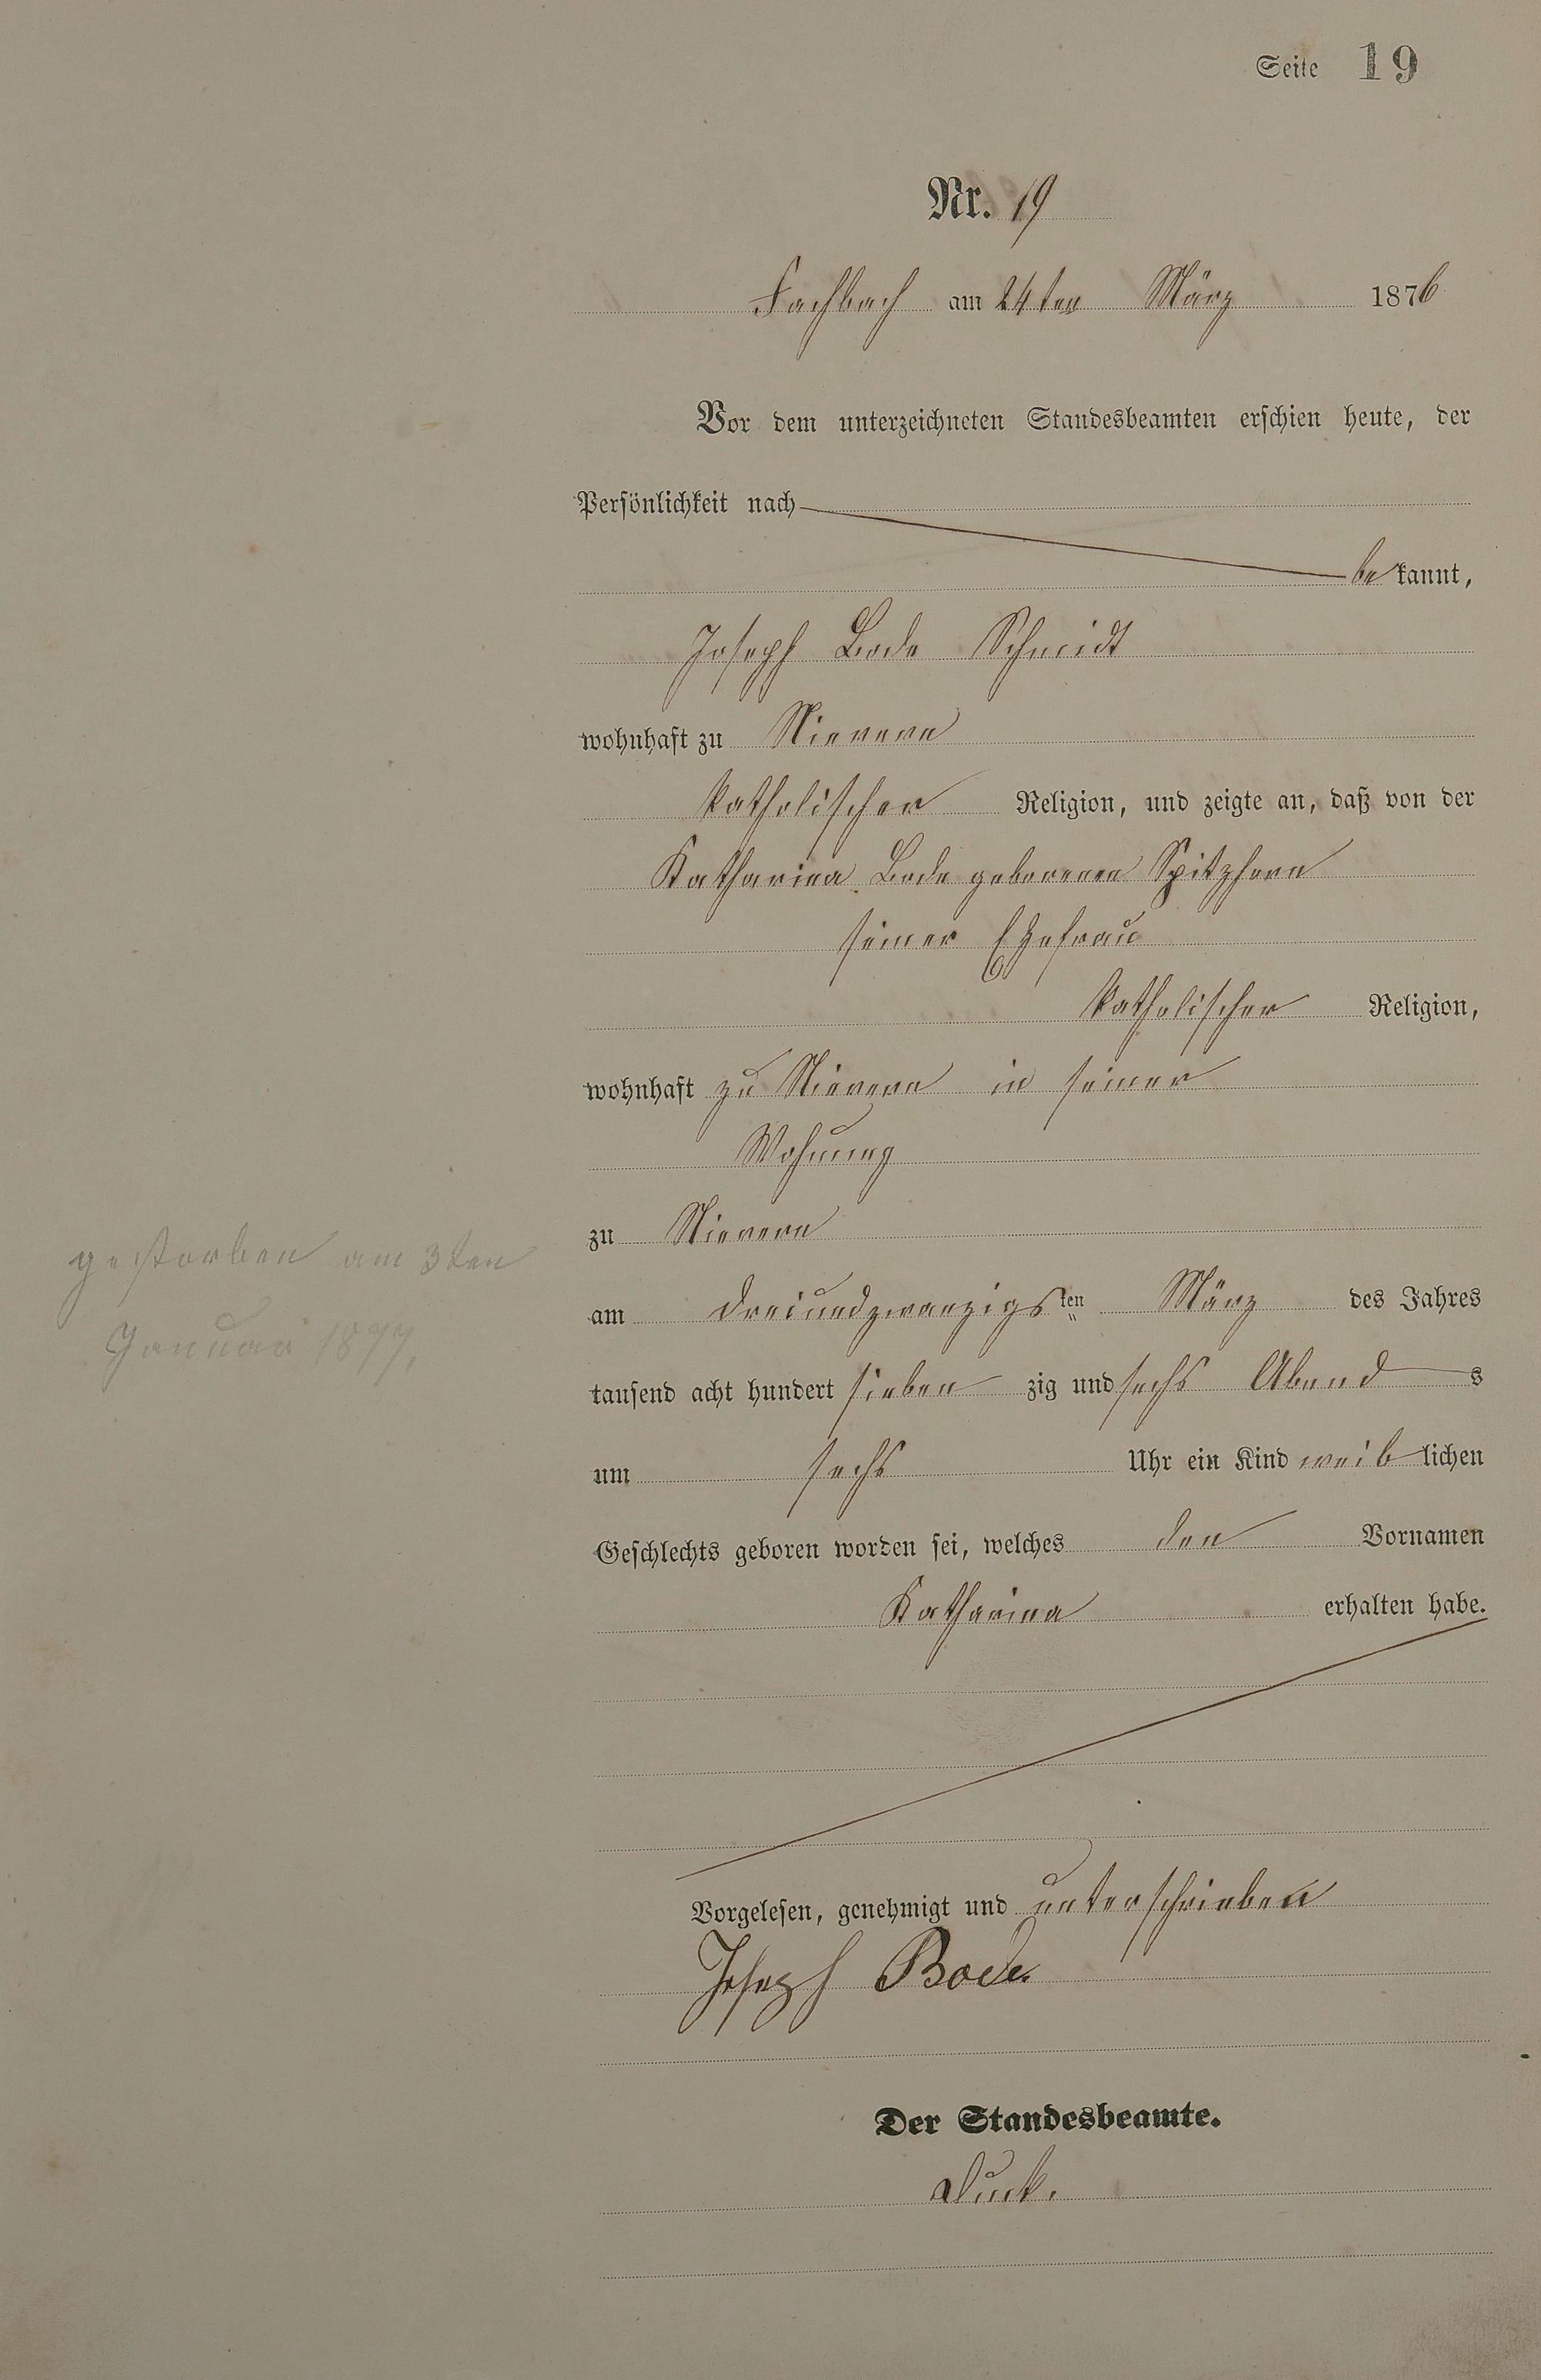 Seite 19
Nr. 19
Fachbach am 24ten März 1876
Vor dem unterzeichneten Standesbeamten erschien heute, der
Persönlichkeit nach
bekannt,
Joseph Bode Schmidt
wohnhaft zu Nievern
katholischer Religion, und zeigte an, daß von der
Katharina Bode geborenen Spitzhorn
seiner Ehefrau
katholischer Religion,
wohnhaft zu Nievern in seiner
Wohnung
zu Nievern
gestorben am 3ten
Januar 1877,
am dreiundzwanzigsten März des Jahres
tausend acht hundert siebenzig und sechs Abends
um sechs Uhr ein Kind weiblichen
Geschlechts geboren worden sei, welches den Vornamen
Katharina erhalten habe.
Vorgelesen, genehmigt und unterschrieben
Joseph Bode
Der Standesbeamte.